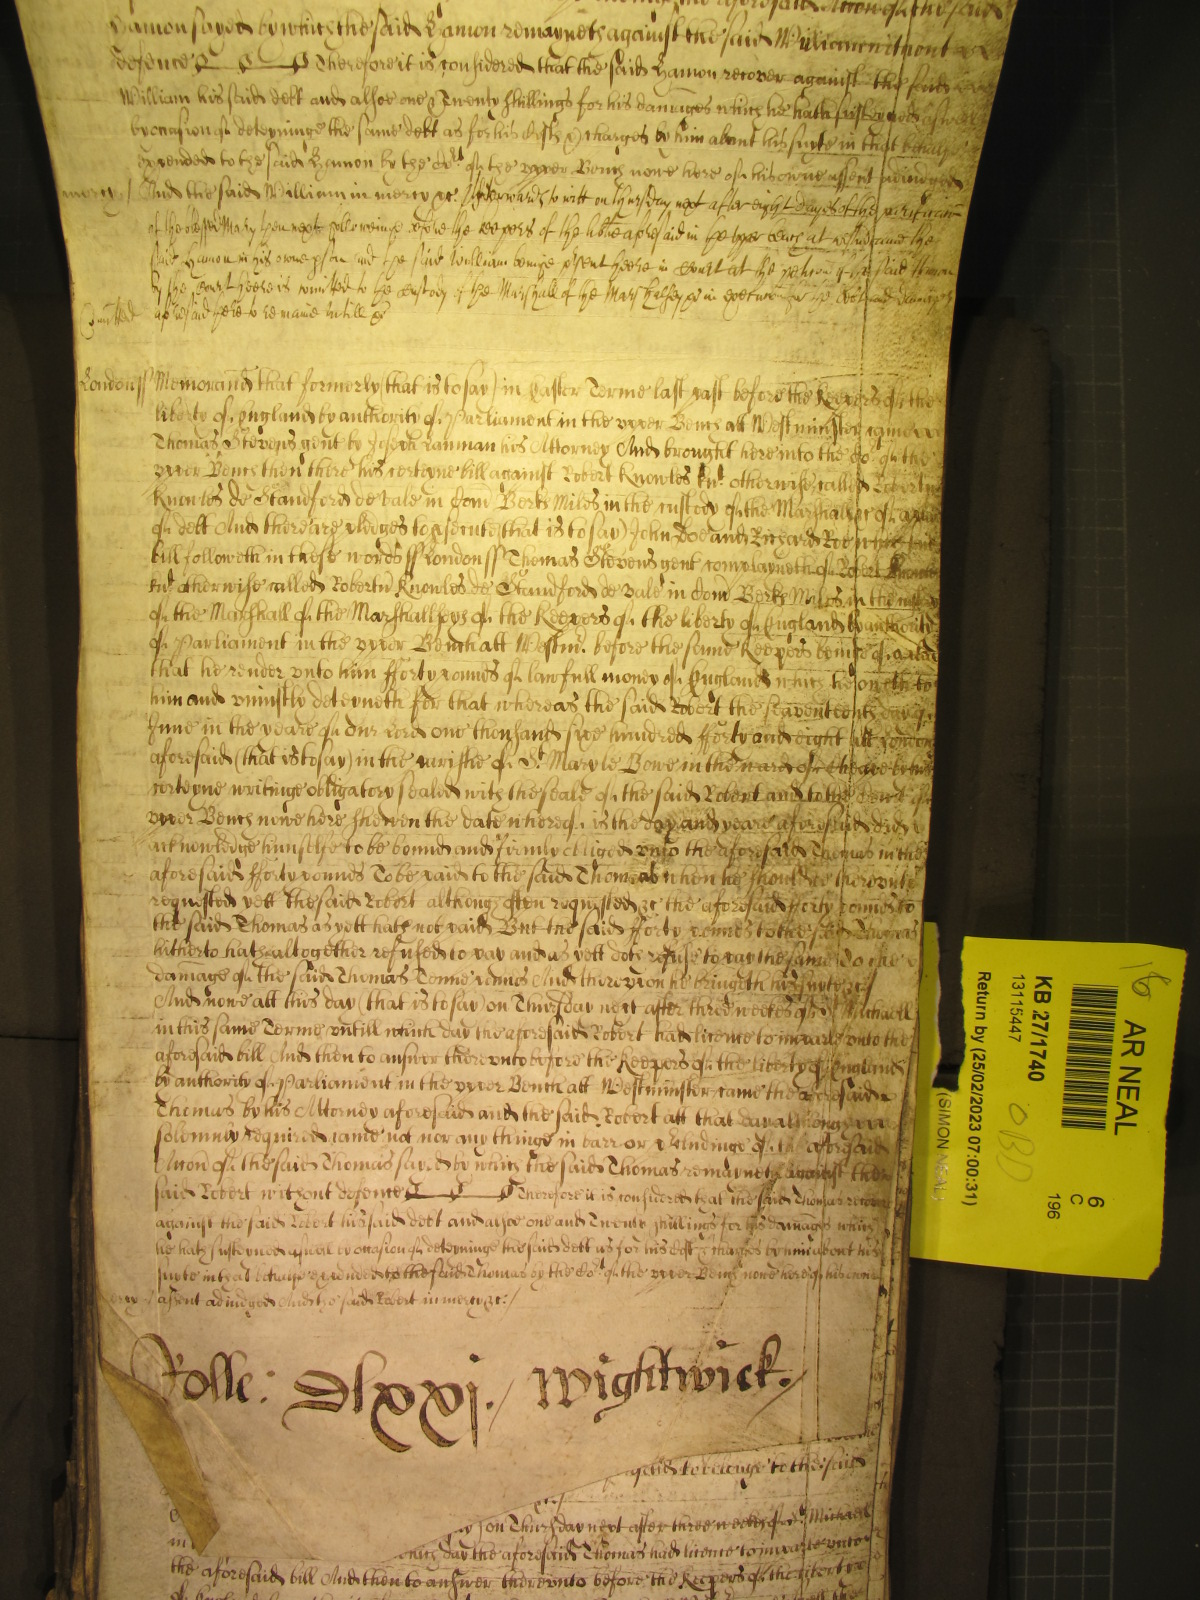 Hamon sayed by which the said Hamon remayneth against the said William without
defence Therefore it is considered that the said Hamon recover against the said
William his said debt and alsoe one & Twenty shillings for his damages which he hath susteyned aswell
by occasion of deteyninge the same debt as for his Costs & charges by him about his suyte in that behalfe
expended to the said Hamon by the Co:rt of the upper Bench nowe here of his owne assent adiudged
mercy / And the said William in mercy &c. Afterwards to witt on Thursday next after eight dayes of the purificacon
of the blessed Mary then next followeinge before the keepers of the libtie aforesaid in the upper bench at Westm came the
said Hamon in his owne pson And the said William beinge psent heere in Court at the peticon of the said Hamon
by the Court heere is comitted to the custody of the Marshall of the Marshalsey &c in execucon for the debt and damages
Comitted aforesaid there to remaine untill &c
London ss Memorand that formerly (that is to say) in Easter Terme last past before the Keepers of the
liberty of England by authority of Parliament in the upper Bench att Westminster came
Thomas Stevens gent by Joseph Lanman his Attorney And brought here into the Co:rt of the
upper Bench then there his certeyne bill against Robert Knowles kn:t otherwise called Robertu
Knowles de Standford de vale in Com Berks Miles in the custody of the Marshall &c of a plea
of debt And there are pledges to psecute (that is to say) John Doe and Richard Roe which said
bill followeth in these words ss London ss Thomas Stevens gent complayneth of Robert Knowles
kn:t otherwise called Robertu Knowles de Standford de vale in Com Berks Miles in the custody
of the Marshall of the Marshallseys of the Keepers of the liberty of England by authority
of Parliament in the upper Bench att Westm:r before the same Keepers beinge of a plea
that he render unto him fforty pounds of lawfull money of England which he oweth to
him and uniustly deteyneth for that whereas the said Robert the seaventeenth day of
June in the yeare of our Lord one thousand sixe hundred fforty and eight att London
aforesaid (that is to say) in the parishe of S:t Mary le Bowe in the ward of Cheape by his
certeyne writinge obligatory sealed with the seale of the said Robert and to the Court of
upper Bench nowe here shewen the date whereof is the day and yeare aforesaid did
acknowledge himselfe to be bound and firmly obliged unto the aforesaid Thomas in the
aforesaid fforty pounds To be paid to the said Thomas when he should be thereunto
requested yett the said Robert although often requested &c the aforesaid fforty pounds to
the said Thomas as yett hath not paid But the said fforty pounds to the said Thomas
hitherto hath altogether refused to pay and as yett doth refuse to pay the same To the
damage of the said Thomas Tenne pounds And thereupon he bringeth his suyte &c
And nowe att this day (that is to say) on Thursday next after three weekes of S:t Michaell
in this same Terme untill which day the aforesaid Robert had licence to imparle unto the
aforesaid bill And then to answer thereunto before the Keepers of the liberty of England
by authority of Parliament in the upper Bench att Westminster came the aforesaid
Thomas by his Attorney aforesaid and the said Robert att that day although
solemnly required came not nor any thinge in barr or pcludinge of the aforesaid
Accon of the said Thomas sayed by which the said Thomas remayneth against the
said Robert without defence Therefore it is considered that the said Thomas recover
against the said Robert his said debt and alsoe one and Twenty shillings for his damages which
he hath susteyned aswell by occasion of deteyninge the said debt as for his Costs & charges by him about his
suyte in that behalfe expended to the said Thomas by the Co:rt of the upper Bench nowe here of his owne
mercy / assent adiudged And the said Robert in mercy &c: /
Rolle: Dlxxj. / Wightwick. /
to belonge to the said
on Thursday next after three weekes of S:t Michaell
day the aforesaid Thomas had licence to imparle unto
the aforesaid bill And then to answer thereunto before the Keepers of the liberty
16
AR NEAL
KB 27/1740
13115447
Return by (25/02/2023 07:00:31)
(SIMON NEAL)
OBD
6
C
196